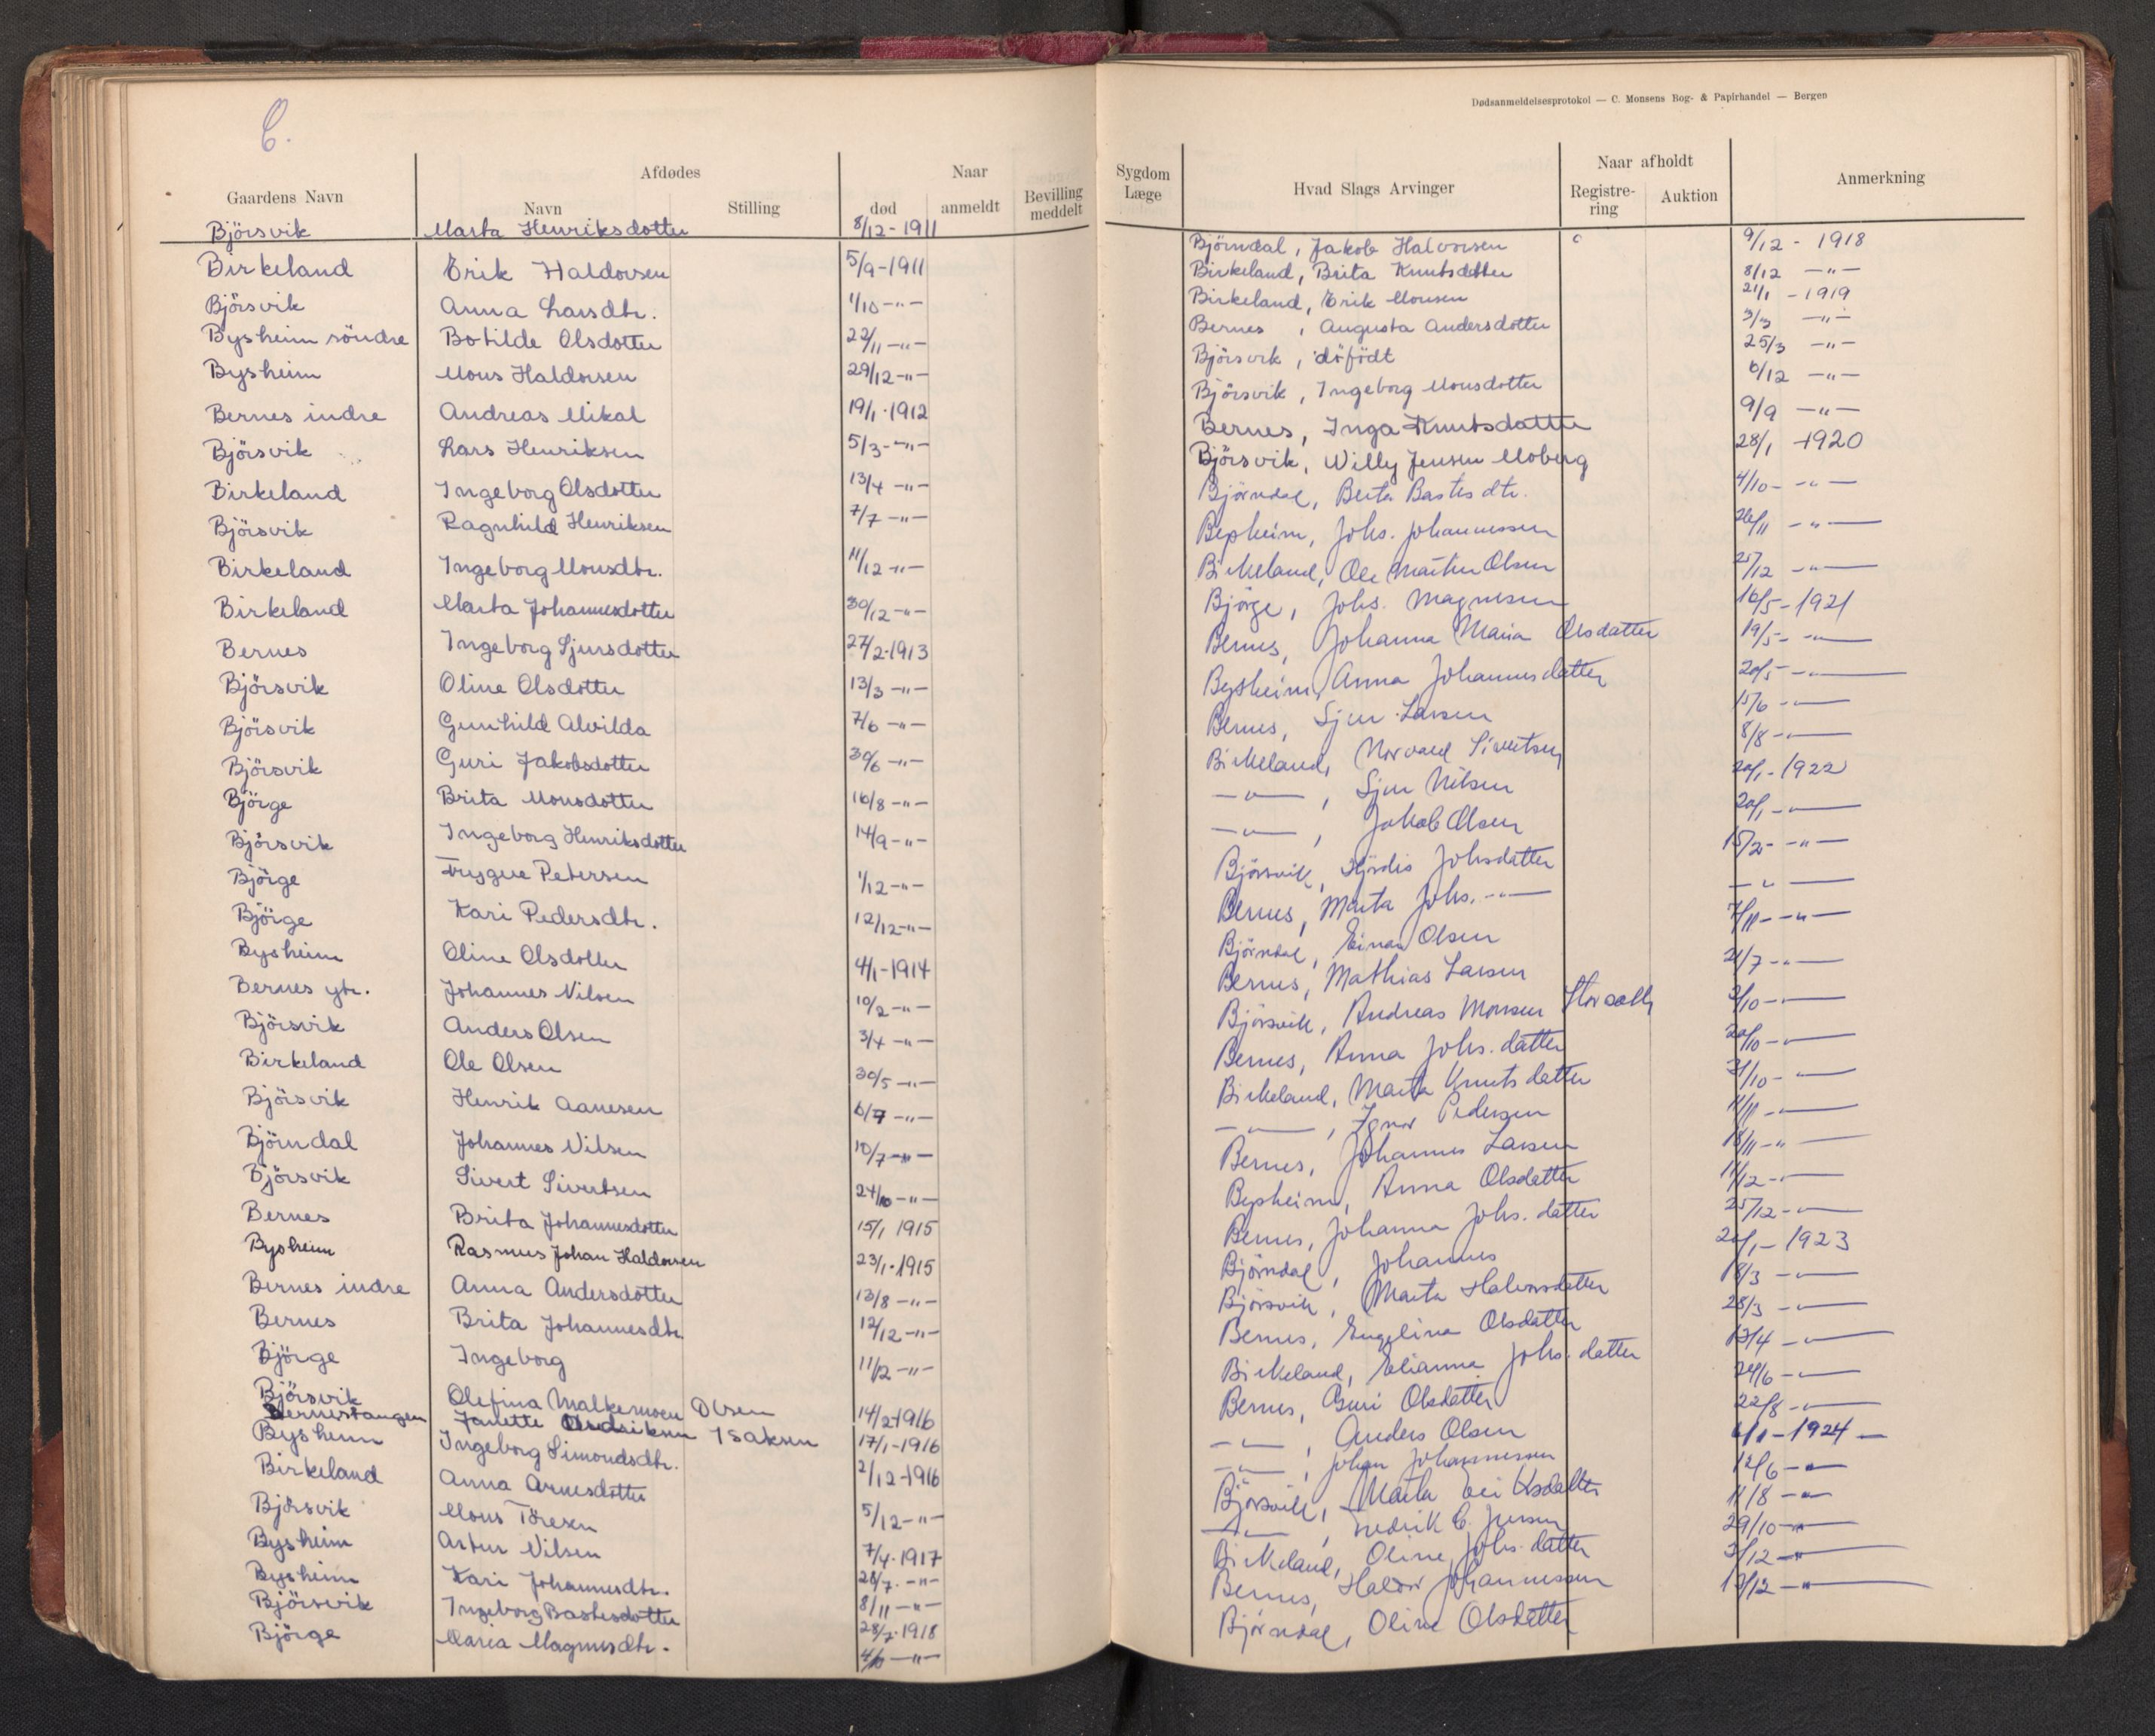 B.
Afdødes
Naar
Gaardens Navn Navn Stilling død anmeldt Bevilling meddelt
Björsvik Marta Henriksdotter 8/12-1911
Birkeland Erik Haldorsen 5/9-1911
Björsvik Anna Larsdtr. 1/10-"-
Bysheim söndre Botilde Olsdotter 22/11-"-
Bysheim Mons Haldorsen 29/12-"-
Bernes indre Andreas Mikal 19/1-1912
Björsvik Lars Henriksen 5/3-"-
Birkeland Ingeborg Olsdotter 13/4-"-
Björsvik Ragnhild Henriksen 7/7-"-
Birkeland Ingeborg Monsdtr. 11/12-"-
Birkeland Marta Johannesdotter 30/12-"-
Bernes Ingeborg Sjursdotter 27/2-1913
Björsvik Oline Olsdotter 13/3-"-
Björsvik Gunhild Alvilda 7/6-"-
Björsvik Guri Jakobsdotter 30/6-"-
Björge Brita Monsdotter 16/8-"-
Björsvik Ingeborg Henriksdotter 14/9-"-
Björge Trygve Petersen 1/12-"-
Björge Kari Pedersdtr. 12/12-"-
Bysheim Oline Olsdotter 4/1-1914
Bernes ytr. Johannes Nilsen 10/2-"-
Björsvik Anders Olsen 3/4-"-
Birkeland Ole Olsen 30/5-"-
Björsvik Henrik Aanesen 6/7-"-
Björndal Johannes Nilsen 10/7-"-
Björsvik Sivert Sivertsen 24/10-"-
Bernes Brita Johannesdotter 15/1 1915
Bysheim Rasmus Johan Haldorsen 23/1-1915
Bernes indre Anna Andersdotter 13/8-"-
Bernes Brita Johannesdtr. 12/12-"-
Björge Ingeborg 11/12-"-
Björsvik Olefina Malkemoen Olsen 14/2-1916
Bernestangen Janette Isaksen 17/1-1916
Bysheim Ingeborg Simondsdtr. 2/12-1916
Birkeland Anna Arnesdotter 5/12-"-
Björsvik Mons Töresen 7/4-1917
Bysheim Artur Nilsen 28/7.-"-
Bysheim Kari Johannesdtr. 8/11-"-
Björsvik Ingeborg Bastesdotter 28/7-1918
Björge Maria Magnusdtr. -"-
Dødsanmeldelsesprotokol — C. Monsens Bog- & Papirhandel — Bergen
Sygdom Læge Hvad Slags Arvinger Naar afholdt Registrering Auktion Anmerkning
Björndal, Jakob Halvorsen 9/12-1918
Birkeland, Brita Knutsdotter 8/12-"-
Birkeland, Erik Monsen 21/1-1919
Bernes, Augusta Andersdotter 3/3-"-
Björsvik, döfödt 25/3-"-
Björsvik, Ingeborg Monsdotter 6/12-"-
Bernes, Inga Knutsdatter 9/9-"-
Björsvik, Willy Jensen Moberg 28/1-1920
Björndal, Berta Bastesdtr. 4/10-"-
Bysheim, Johs. Johannessen 26/11-"-
Birkeland, Ole Martin Olsen 25/12-"-
Björge, Johs. Magnesen 16/5-1921
Bernes, Johanna Maria Olsdatter 19/5-"-
Bysheim, Anna Johannesdatter 20/5-"-
Bernes, Sjur Larsen 15/6-"-
Birkeland, Norvald Sivertsen 8/8-"-
-"-, Sjur Nilsen 20/1-1922
-"-, Jakob Olsen 20/1-"-
Björsvik, Hjördis Johsdatter 15/2-"-
Bernes, Marta Johs.-"- -"-
Björndal, Einar Olsen 7/11-"-
Bernes, Mathias Larsen 21/7-"-
Björsvik, Andreas Monsen 2/10-"-
Bernes, Anna Johs.datter 20/10-"-
Birkeland, Marta Knutsdatter 21/10-"-
-"-, Pedersen 11/11-"-
Bernes, Johannes Larsen 18/11-"-
Bysheim, Anna Olsdatter 11/12-"-
Bernes, Johanna Johs.datter 25/12-"-
Björndal, Johannes 20/1-1923
Björsvik, Marta Halvorsdatter 18/3-"-
Bernes, Engelina Olsdatter 28/3-"-
Birkeland, Elianna Johs.datter 13/4-"-
Bernes, Guri Olsdatter 24/6-"-
-"-, Anders Olsen 22/8-"-
-"-, Johan Johannessen 1924
Björsvik, Marta 12/6-"-
-"-, Fredrik C. Jensen 11/8-"-
Birkeland, Oline Johs.datter 29/10-"-
Bernes, Haldor Johannessen 3/12-"-
Björndal, Oline Olsdatter 13/12-"-